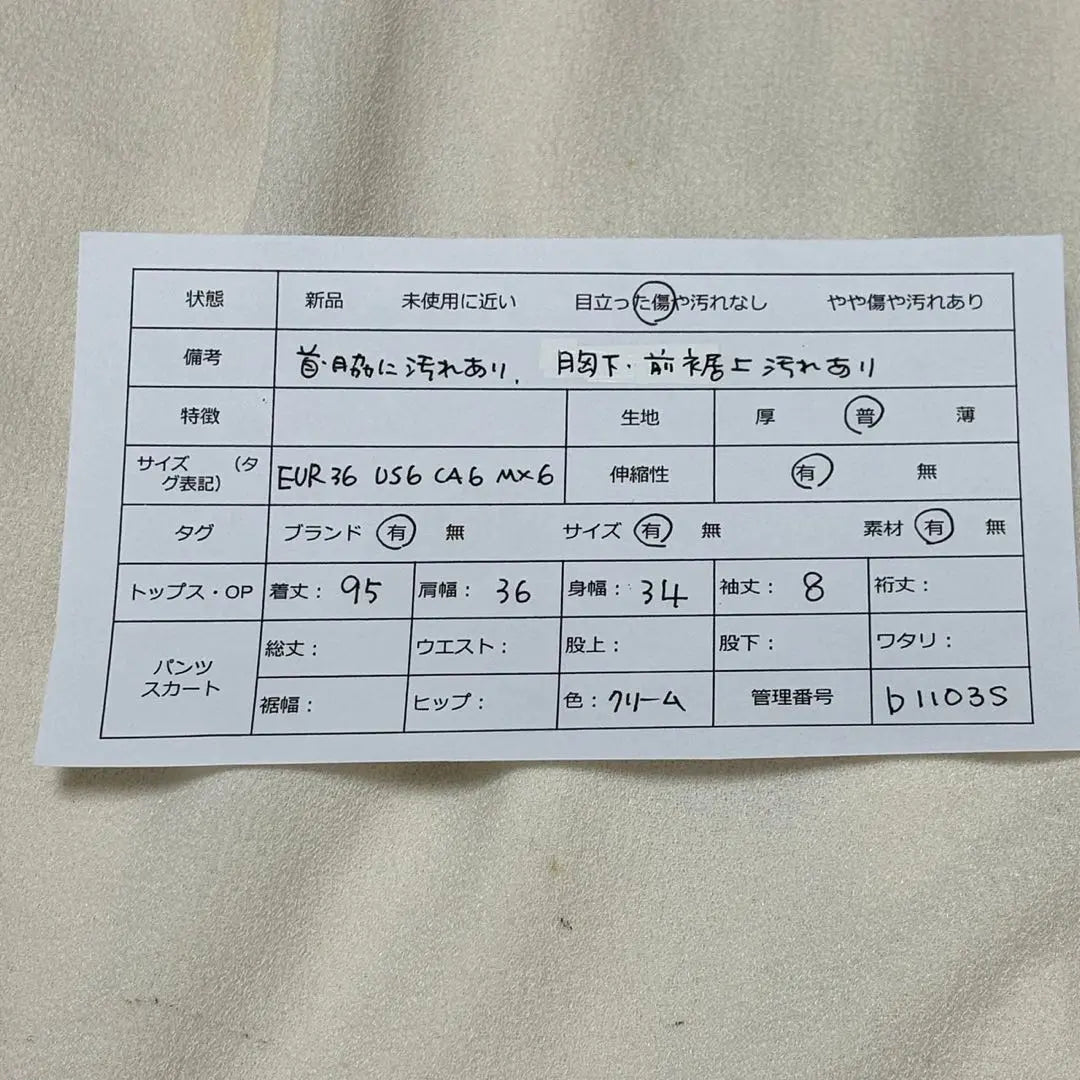 状態 新品 未使用に近い 目立った傷や汚れなし やや傷や汚れあり
備考 首・脇に汚れあり. 胸下・前裾上汚れあり
特徴 生地 厚 普 薄
サイズ （タグ表記） EUR36 US6 CA6 MX6 伸縮性 有 無
タグ ブランド 有 無 サイズ 有 無 素材 有 無
トップス・OP 着丈： 95 肩幅： 36 身幅： 34 袖丈： 8 裄丈：
パンツ スカート 総丈： ウエスト： 股上： 股下： ワタリ：
裾幅： ヒップ： 色： クリーム 管理番号 b1103S